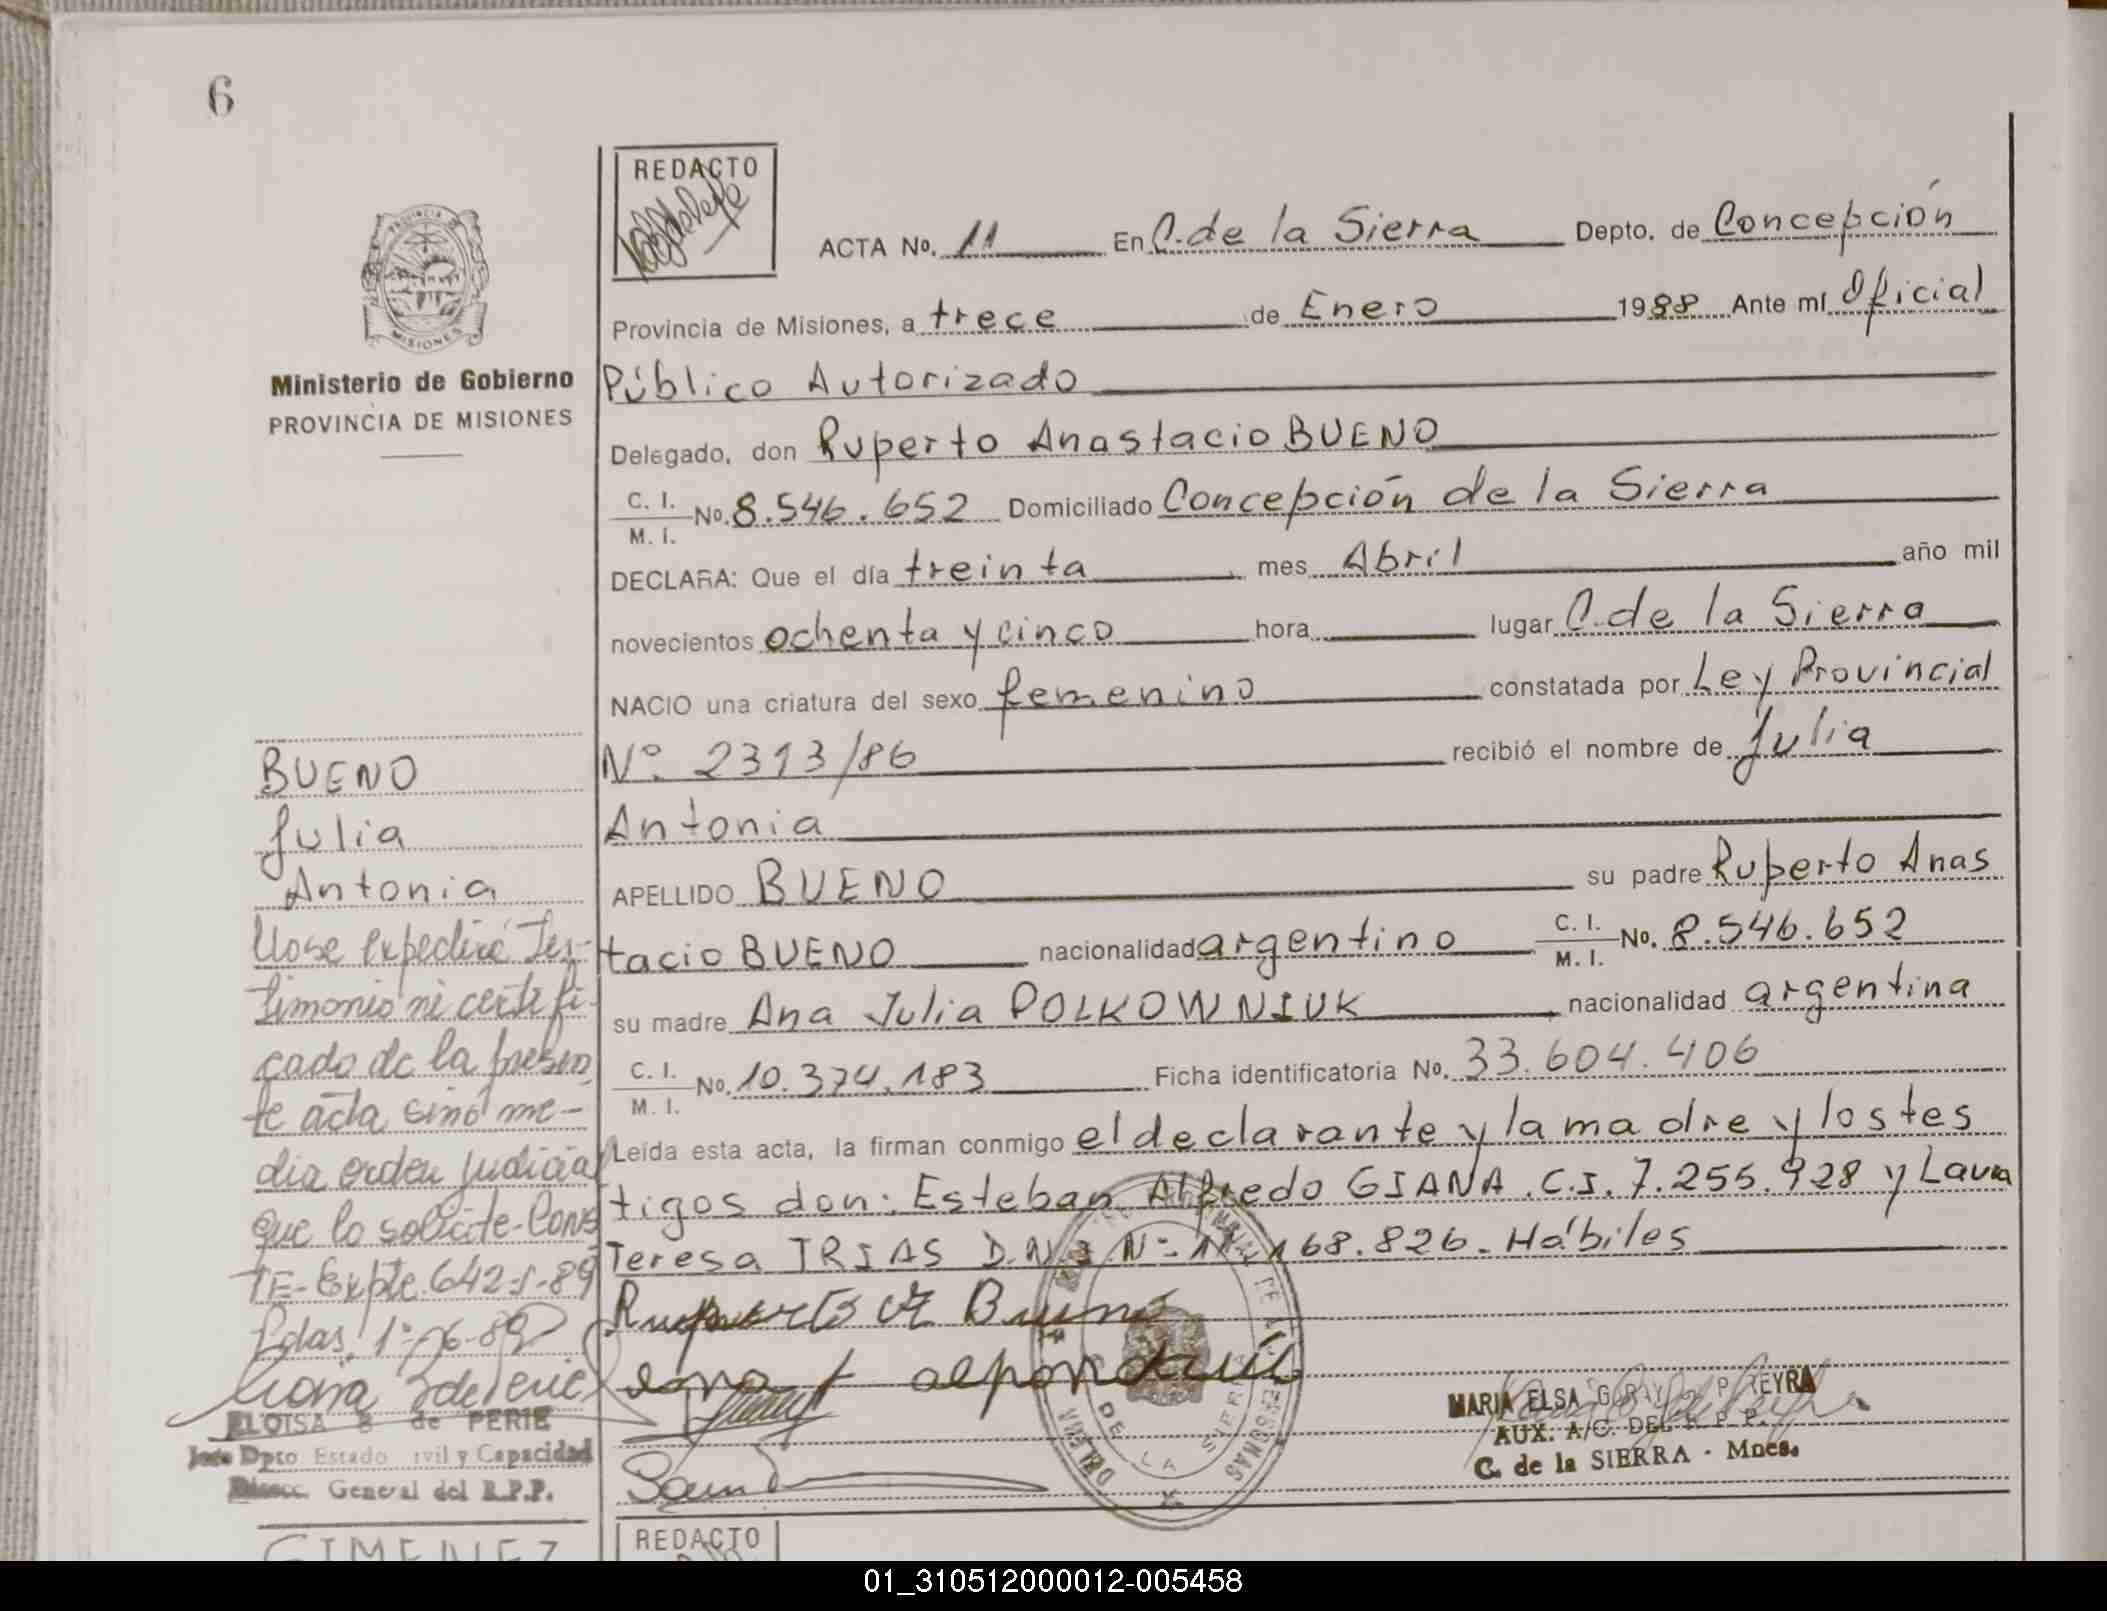 6
REDACTO
ACTA No. 11 En C. de la Sierra Depto. de Concepción
Provincia de Misiones, a trece de Enero 1988 Ante mí Oficial
Público Autorizado
Delegado, don Ruperto Anastacio BUENO
C. I.
M. I. No. 8.546.652 Domiciliado Concepción de la Sierra
DECLARA: Que el día treinta mes Abril año mil
novecientos ochenta y cinco hora lugar C. de la Sierra
NACIO una criatura del sexo femenino constatada por Ley Provincial
Nº. 2313/86 recibió el nombre de Julia
Antonia
APELLIDO BUENO su padre Ruperto Anas
tacio BUENO nacionalidad argentino C. I.
M. I. No. 8.546.652
su madre Ana Julia POLKOWNIUK nacionalidad argentina
C. I.
M. I. No. 10.374.183 Ficha identificatoria No. 33.604.406
Leída esta acta, la firman conmigo el declarante y la madre y los tes
tigos don: Esteban Alfredo GIANA. C.I. 7.255.928 y Laura
Teresa TRIAS D.N.I Nº 168.826. Hábiles
PROVINCIA
MISIONES
Ministerio de Gobierno
PROVINCIA DE MISIONES
BUENO
Julia
Antonia
No se expedirá Tes-
timonio ni certifi-
cado de la presen
te acta sinó me-
dia orden judicial
que lo solicite-Cons
TE-Expte. 642-I-89
Pdas. 1º-6-89
ELOISA de PERIE
Jefe Dpto Estado ivil y Capacidad
General del R.P.P.
DE LA SIERRA
MISIONES
MARIA ELSA G. PEREYRA
AUX. A/C. DEL R. P. P.
C. de la SIERRA - Mnes.
REDACTO
GIMENEZ
01_310512000012-005458